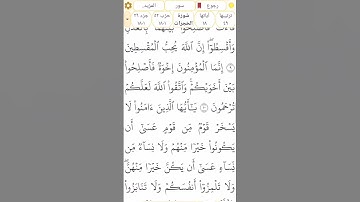 رجوع سور المزيد
ترتيبها ٤٩ آياتها ١٨ سُورَةُ الحُجُرَات حزب ٥٢ جزء ٢٦
فَآءَتْ فَأَصْلِحُوا۟ بَيْنَهُمَا بِٱلْعَدْلِ
وَأَقْسِطُوٓا۟ ۖ إِنَّ ٱللَّهَ يُحِبُّ ٱلْمُقْسِطِينَ
۝٩ إِنَّمَا ٱلْمُؤْمِنُونَ إِخْوَةٌ فَأَصْلِحُوا۟
بَيْنَ أَخَوَيْكُمْ ۚ وَٱتَّقُوا۟ ٱللَّهَ لَعَلَّكُمْ
تُرْحَمُونَ ۝١٠ يَـٰٓأَيُّهَا ٱلَّذِينَ ءَامَنُوا۟ لَا
يَسْخَرْ قَوْمٌ مِّن قَوْمٍ عَسَىٰٓ أَن
يَكُونُوا۟ خَيْرًا مِّنْهُمْ وَلَا نِسَآءٌ مِّن
نِّسَآءٍ عَسَىٰٓ أَن يَكُنَّ خَيْرًا مِّنْهُنَّ ۖ
وَلَا تَلْمِزُوٓا۟ أَنفُسَكُمْ وَلَا تَنَابَزُوا۟